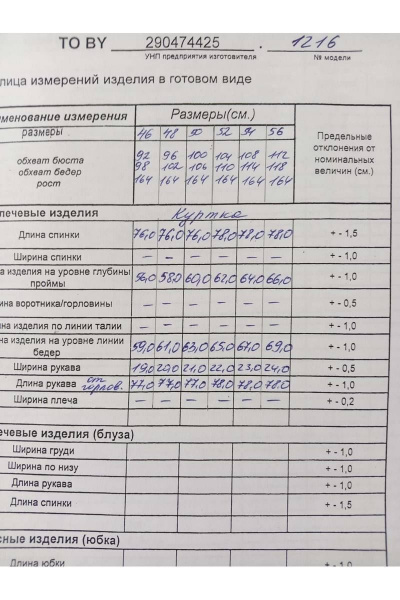 TO BY 290474425 . 1216
УНП предприятия изготовителя № модели
лица измерений изделия в готовом виде
именование измерения Размеры(см.) Предельные отклонения от номинальных величин (см.)
размеры 46 48 50 52 54 56
обхват бюста 92 96 100 104 108 112
обхват бедер 98 102 106 110 114 118
рост 164 164 164 164 164 164
лечевые изделия Куртка
Длина спинки 76,0 76,0 76,0 78,0 78,0 78,0 + - 1,5
Ширина спинки – – – – – – + - 1,0
а изделия на уровне глубины проймы 56,0 58,0 60,0 62,0 64,0 66,0 + - 1,0
ина воротника/горловины – – – – – – + - 0,5
на изделия по линии талии – – – – – – + - 1,0
на изделия на уровне линии бедер 59,0 61,0 63,0 65,0 67,0 69,0 + - 1,0
Ширина рукава 19,0 20,0 21,0 22,0 23,0 24,0 + - 0,5
Длина рукава от горлов. 77,0 77,0 77,0 78,0 78,0 78,0 + - 1,0
Ширина плеча – – – – – – + - 0,2
ечевые изделия (блуза)
Ширина груди + - 1,0
Ширина по низу + - 1,0
Длина рукава + - 1,0
Длина спинки + - 1,5
сные изделия (юбка)
Длина юбки + - 1,0